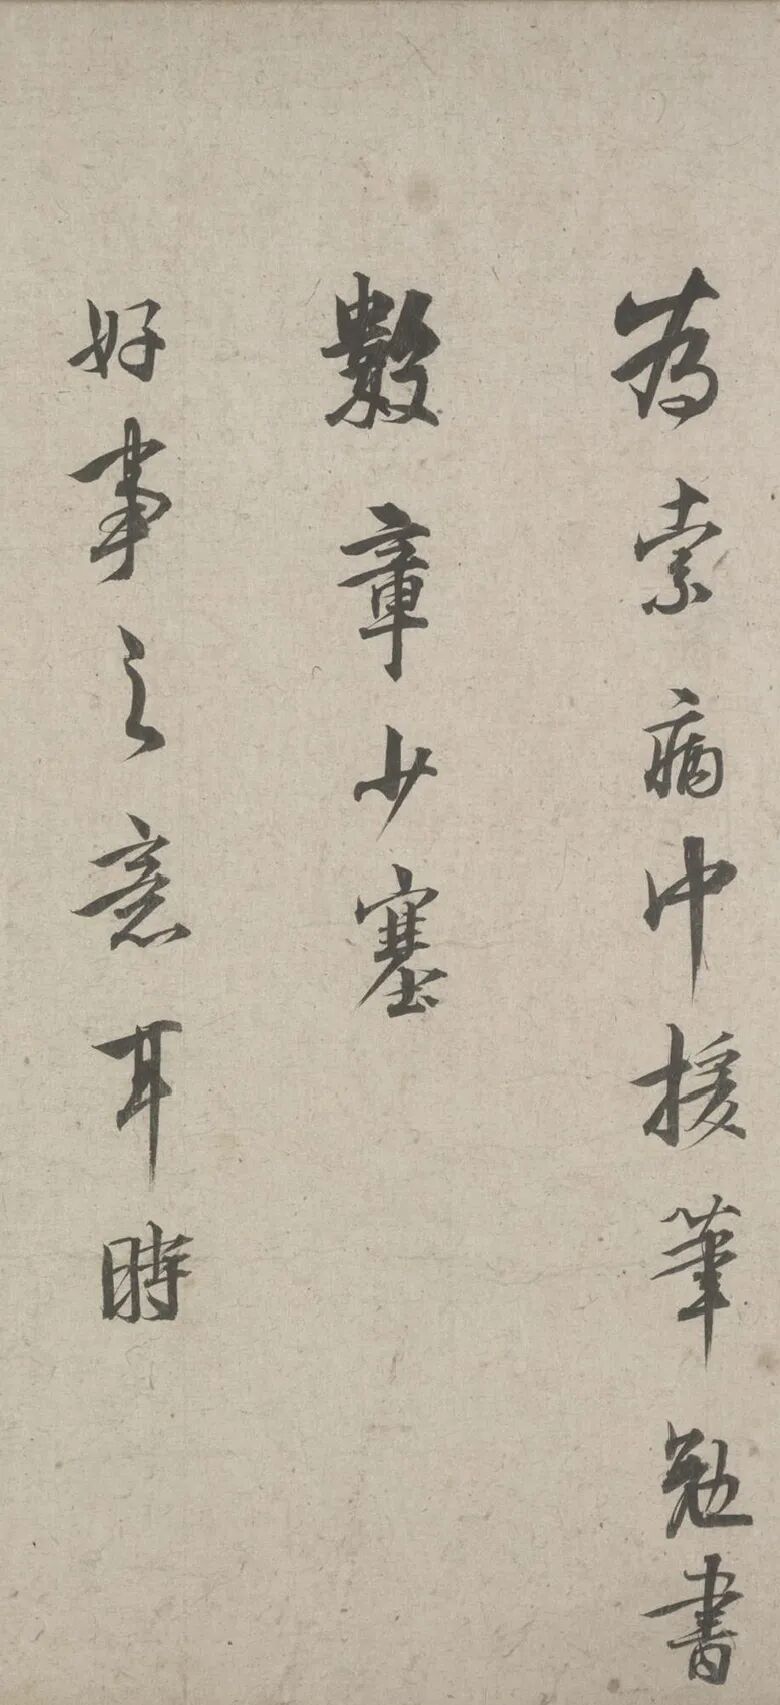 為索病中援筆勉書
數章少塞
好事之意耳時